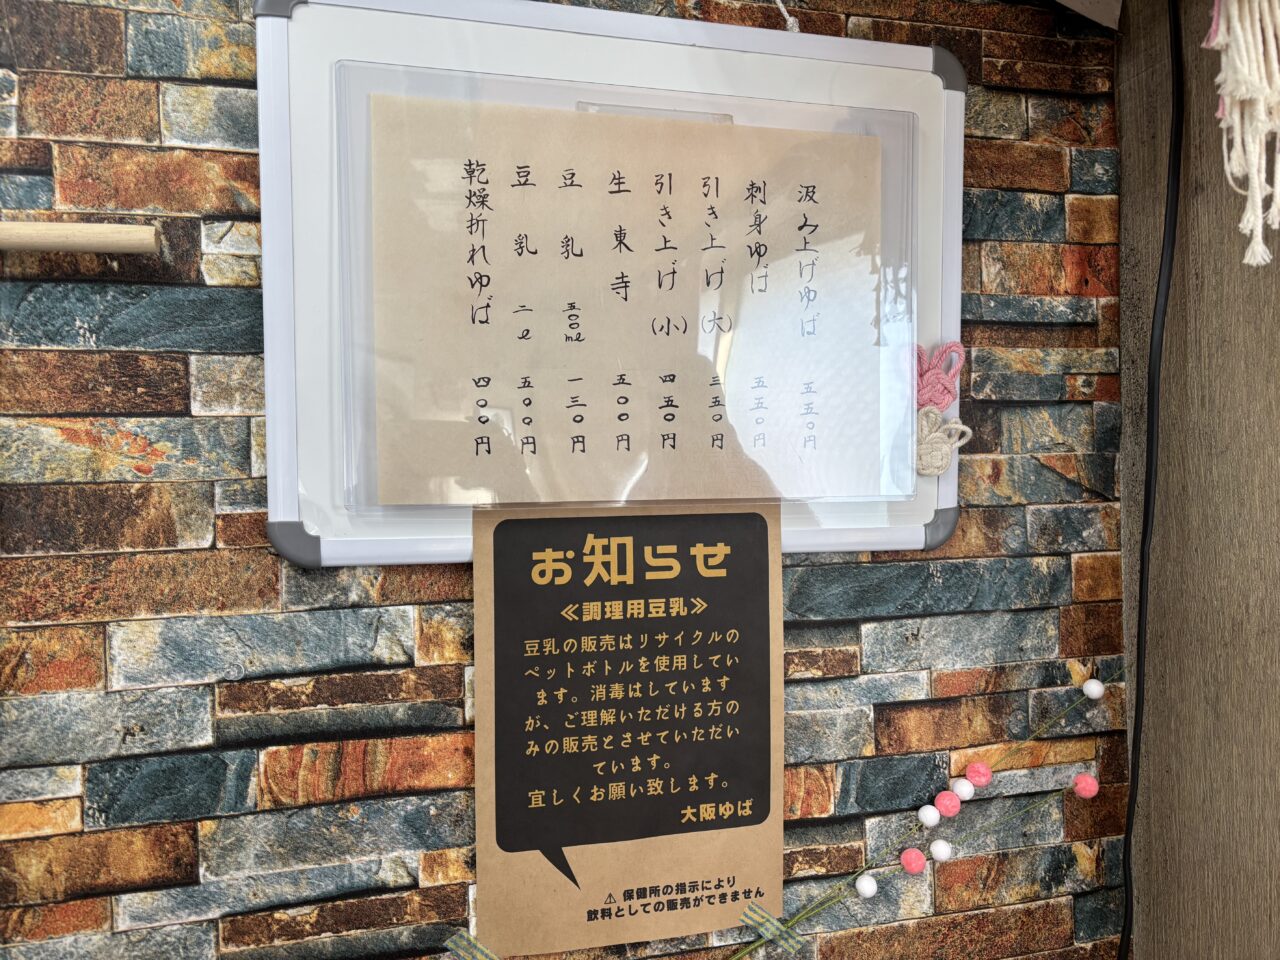 汲み上げゆば 五五〇円
刺身ゆば 五五〇円
引き上げ(大) 三五〇円
引き上げ(小) 四五〇円
生東寺 五〇〇円
豆乳 五〇〇ml 一三〇円
豆乳 二l 五〇〇円
乾燥折れゆば 四〇〇円
お知らせ
≪調理用豆乳≫
豆乳の販売はリサイクルの
ペットボトルを使用してい
ます。消毒はしています
が、ご理解いただける方の
みの販売とさせていただい
ています。
宜しくお願い致します。
大阪ゆば
⚠ 保健所の指示により
飲料としての販売ができません